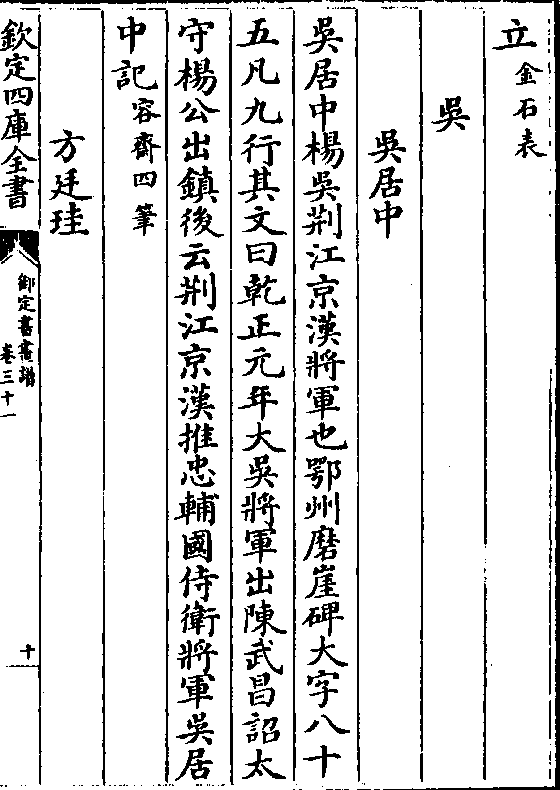 立金石表
吳
吳居中
吳居中楊吳荆江京漢將軍也鄂州磨崖碑大字八十
五凡九行其文曰乾正元年大吳將軍出陳武昌詔太
守楊公出鎮後云荆江京漢推忠輔國侍衛將軍吳居
中記容齋四筆
方廷珪
欽定四庫全書
御定書畫譜
卷三十一
十